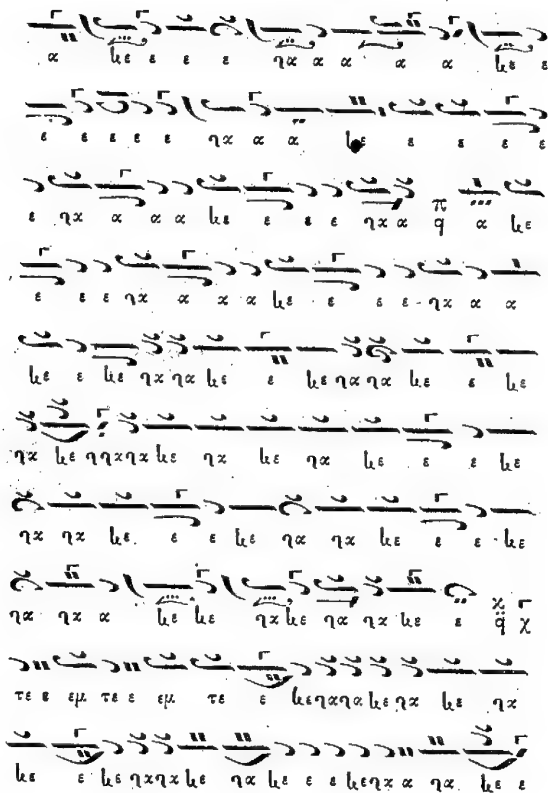 α νε ε ε ε να α α α α νε ε
ε ε ε ε ε να α α νε ε ε ε ε
ε να α α α νε ε ε ε να α π q α νε
ε ε ε να α α α νε ε ε ε να α α
νε ε νε να να νε ε νε να να νε ε νε
να νε να να νε να νε να νε ε ε νε
να να νε ε ε νε να να νε ε ε νε
να να α νε νε να νε να να νε ε χ q Γ χ
τε ε εμ τε ε εμ τε ε νε να να νε να νε να
νε ε νε να να νε να νε ε ε νε να α να νε ε